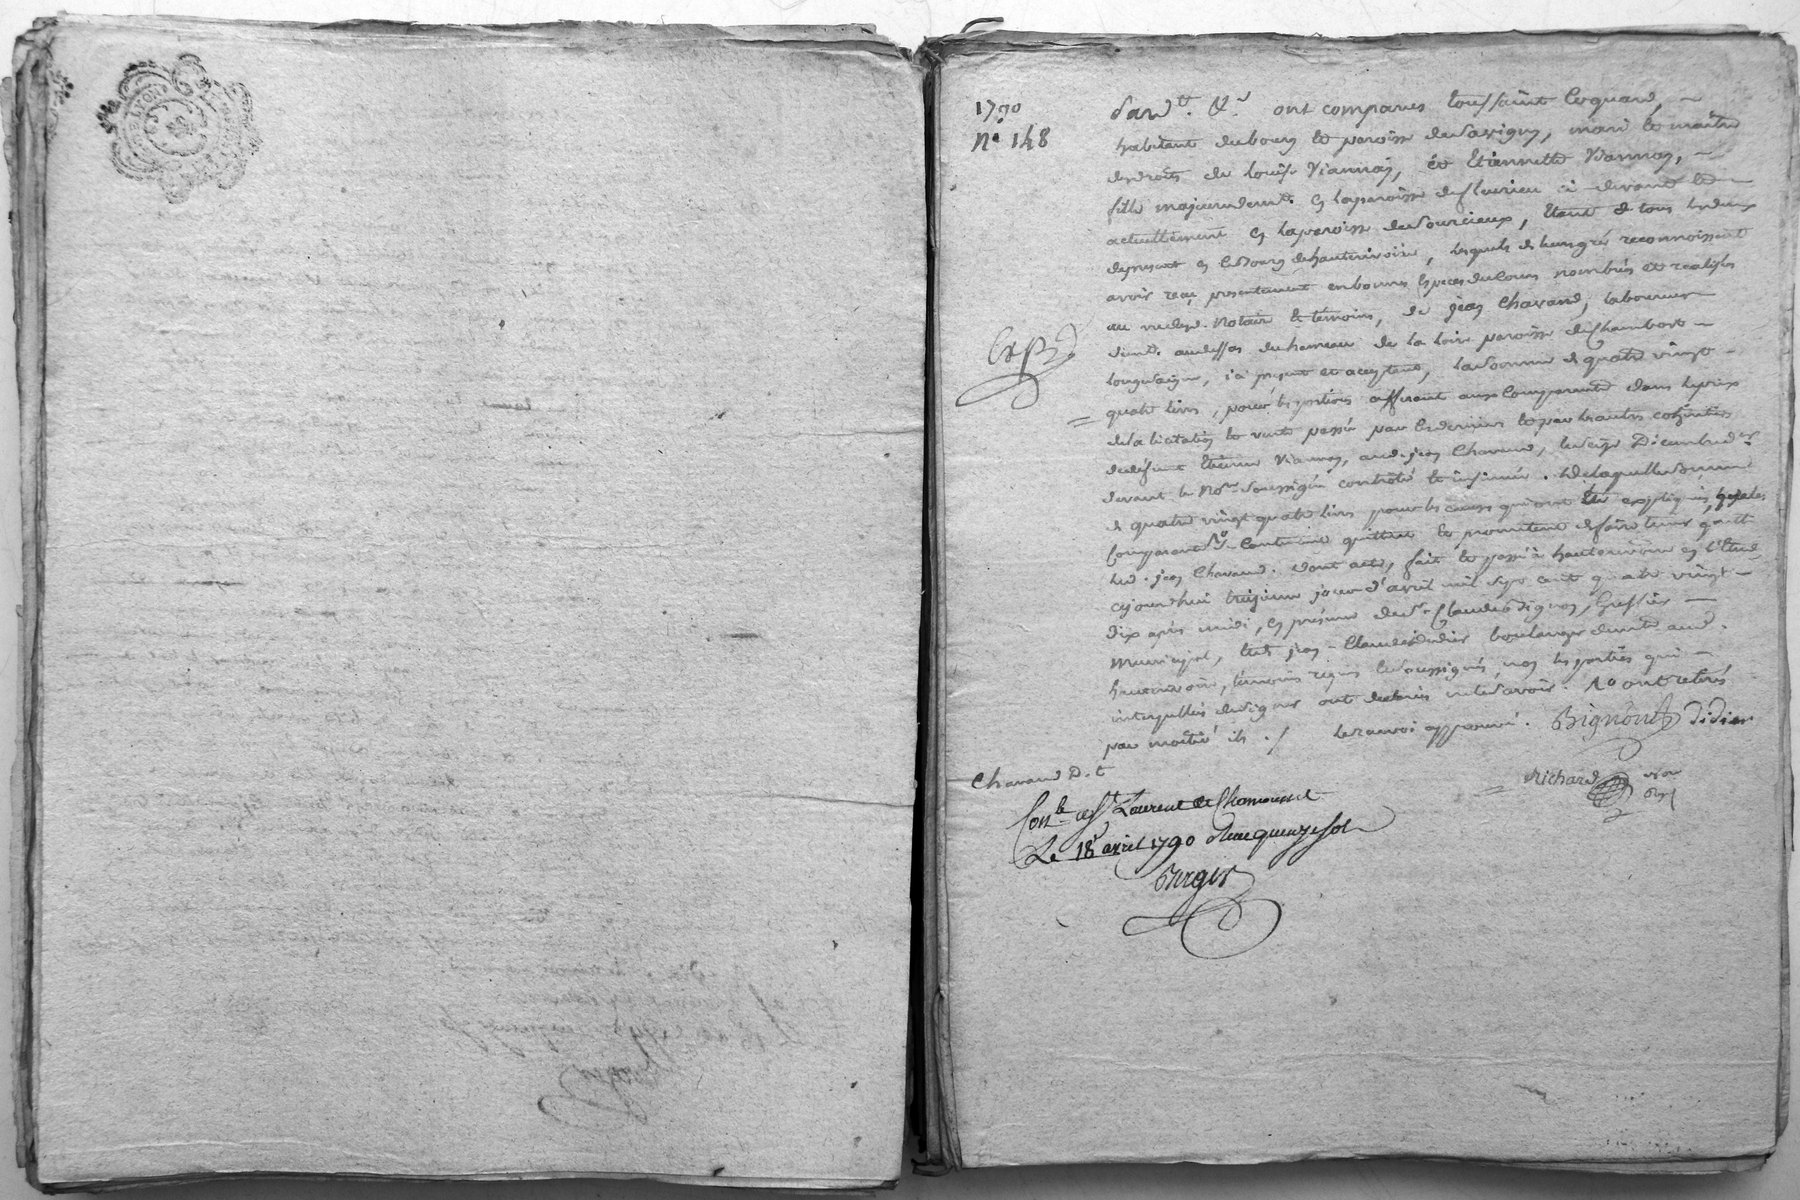 LYON
1790
n.° 148
Pard.tt &.a ont comparus toussaint Coquard,
habitant du bourg et paroisse de Savigny, mari et maitre
des droits de Louise Viannay, et Etiennette Viannay,
fille majeure demt. en la paroisse de fleurieu ci-devant et
actuellement en la paroisse de Sourcieux, étant tous les deux
de present en le Bourg de hauterivoire, lesquels de leur gré reconnoissent
avoir reçu presentement en bonnes Especes de cours nombrés et realisés
au vu desd. Notaire et temoins, de jean Chavand, laboureur
demt. au dessus du hameau de la loire paroisse de Chambost
longessaigne, ici present et acceptant, la Somme de quatre vingt
quatre livres, pour les portions afferant aux Comparants dans le prix
de la licitation et vente passée par les derniers et par les autres cohéritiers
de défunt Etienne Viannay, aud. jean Chavand, le seize Décembre d.r
devant le No.re Soussigné controlé et insinué. de laquelle Somme
de quatre vingt quatre livres pour les causes qui ont été expliquées, les
Comparants Contents quittent et promettent de faire tenir quitte
led. jean Chavand. dont acte, fait et passé à hauterivoire en l'étude
cejourd'hui treizieme jour d'avril mil sept cent quatre vingt
dix après midi, en présence de Sr. Claude Bignon, Greffier
Municipal, et de jean-Claude Didier boulanger demt. aud.
hauterivoire, témoins requis et Soussignés, non les parties qui
interpellées de signer ont declaré ne le savoir.
par moitié ils ./ le renvoi approuvé. Bignon Didier
Chavand D.t
Richard
Con.le à St Laurent de Chamousset
Le 18 avril 1790 Reçu quinze sols
Berger